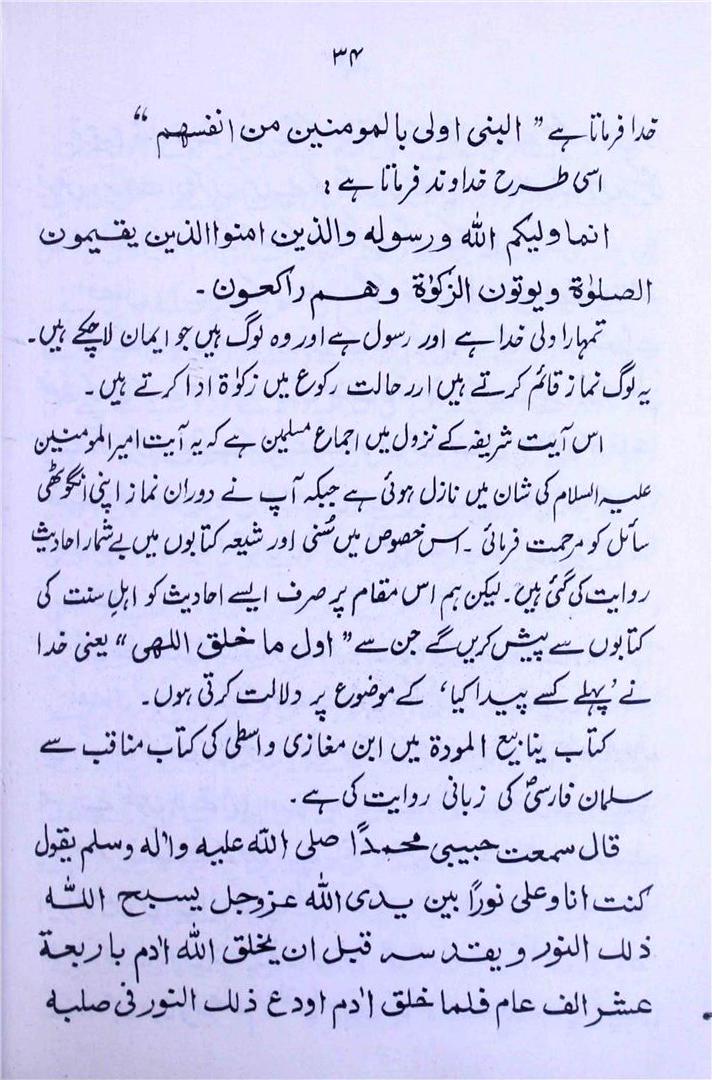 ۳۴
خدا فرماتا ہے ” البنی اولی بالمومنین من انفسھم “
اسی طرح خداوند فرماتا ہے :
انما ولیکم اللہ ورسولہ والذین امنوا الذین یقیمون
الصلوٰۃ ویوتون الزکوٰۃ وھم راکعون ۔
تمہارا ولی خدا ہے اور رسول ہے اور وہ لوگ ہیں جو ایمان لاچکے ہیں۔
یہ لوگ نماز قائم کرتے ہیں اور حالت رکوع میں زکوٰۃ ادا کرتے ہیں ۔
اس آیت شریفہ کے نزول میں اجماع مسلمین ہے کہ یہ آیت امیرالمومنین
علیہ السلام کی شان میں نازل ہوئی ہے جبکہ آپ نے دوران نماز اپنی انگوٹھی
سائل کو مرحمت فرمائی ۔ اس خصوص میں سُنی اور شیعہ کتابوں میں بے شمار احادیث
روایت کی گئی ہیں ۔ لیکن ہم اس مقام پر صرف ایسے احادیث کو اہلِ سنت کی
کتابوں سے پیش کریں گے جن سے ” اول ما خلق اللھی “ یعنی خدا
نے ’پہلے کسے پیدا کیا‘ کے موضوع پر دلالت کرتی ہوں۔
کتاب ینابیع المودۃ میں ابن مغازی واسطی کی کتاب مناقب سے
سلمان فارسیؓ کی زبانی روایت کی ہے ۔
قال سمعت حبیبی محمدًا صلی اللّٰہ علیہ واٰلہ وسلم یقول
کنت انا وعلی نورًا بین یدی اللّٰہ عزوجل یسبح اللّٰہ
ذلک النور و یقدسہ قبل ان یخلق اللّٰہ اٰدم باربعة
عشر الف عام فلما خلق اٰدم اودع ذلک النور فی صلبہ